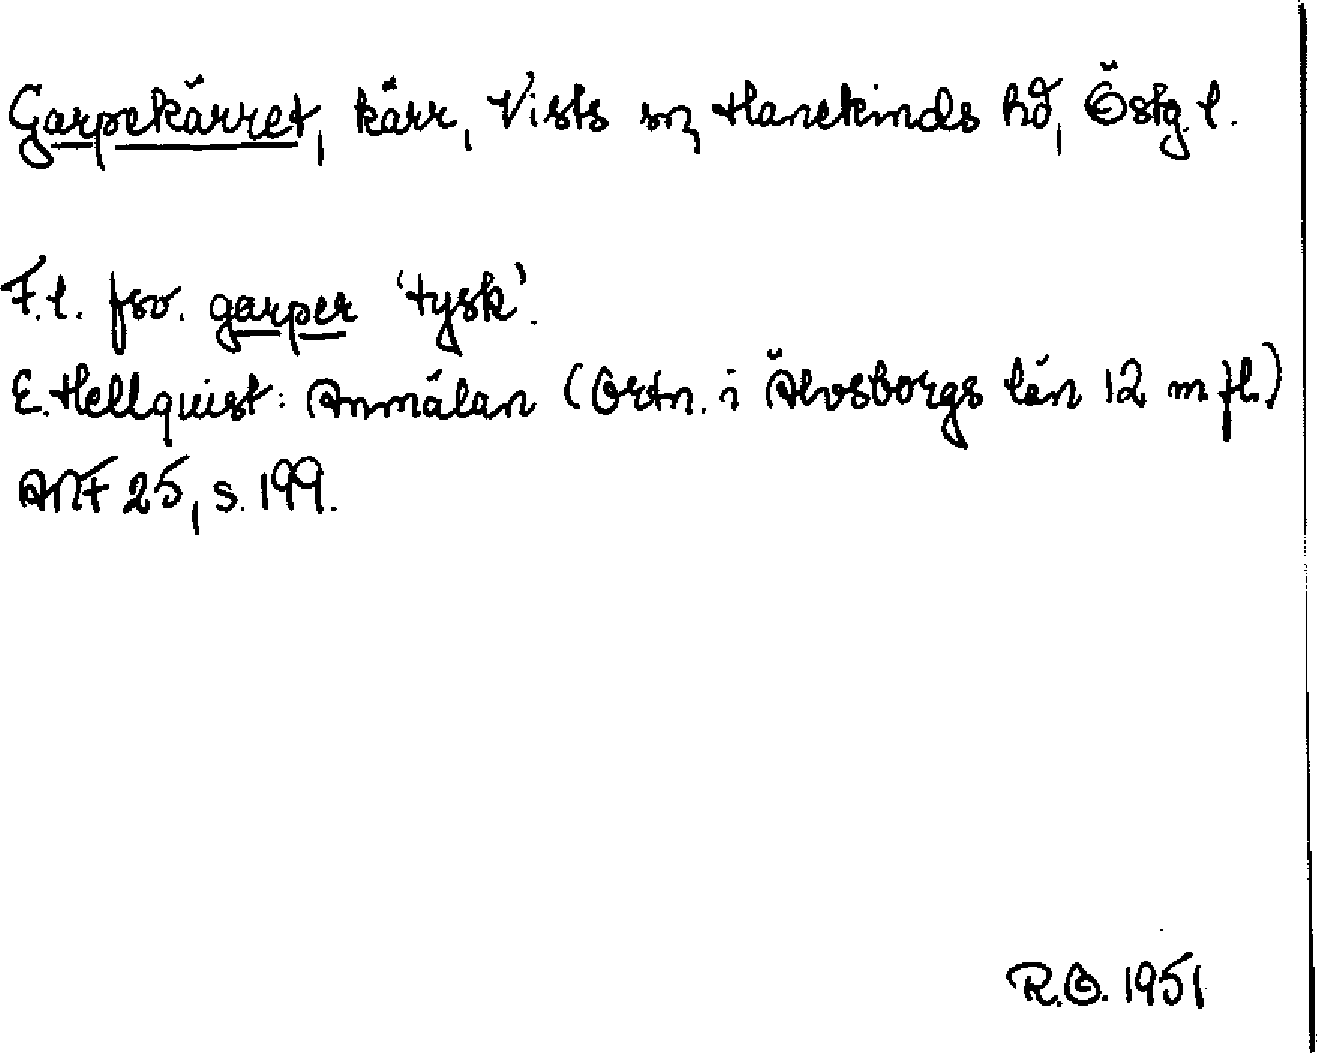 Garpekärret, kärr, Vists sn, Hanekinds hd, Östg. l.
F.l. fsv. garper 'tysk'.
E. Hellquist: Anmälan (Ortn. i Älvsborgs län 12 m fl.)
ANF 25, s. 199.
R.O. 1951